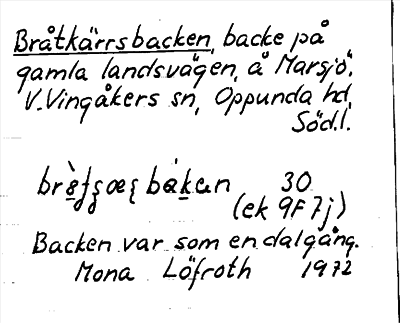 Bråtkärrsbacken, backe på
gamla landsvägen, å Marsjö,
V. Vingåkers sn, Oppunda hd,
Söd.l.
30
(ek 9F7j)
Backen var som en dalgång.
Mona Löfroth 1972